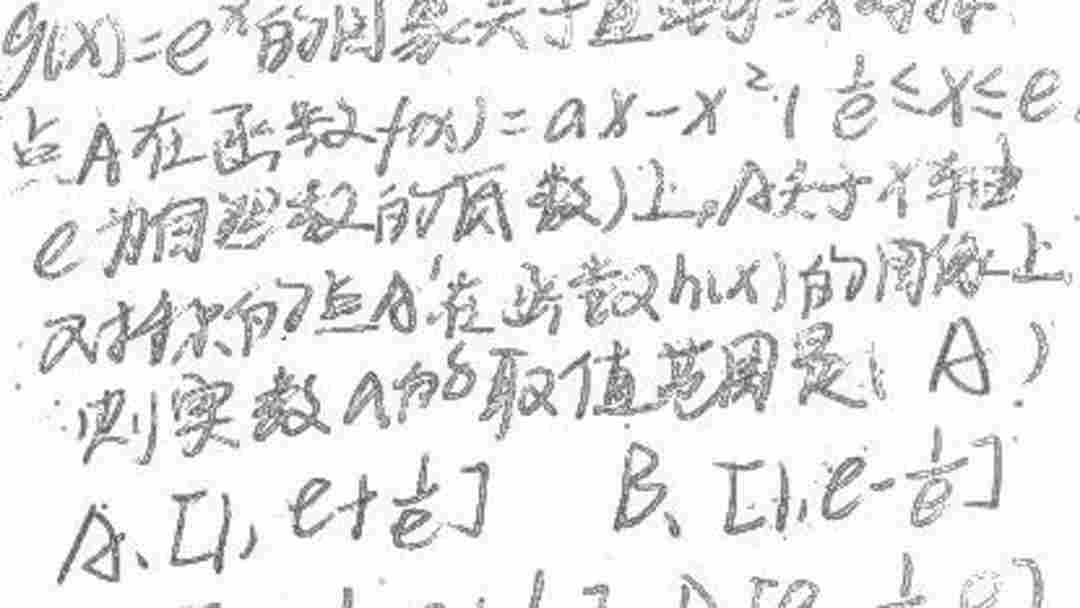 g(x)=e^x的图象关于直线y=x对称
点A在函数f(x)=ax-x²(1/e≤x≤e,
e为自然数的底数)上,A关于x轴
对称的点A'在函数h(x)的图像上
则实数a的取值范围是( A )
A、[1, e+1/e] B、[1, e-1/e]